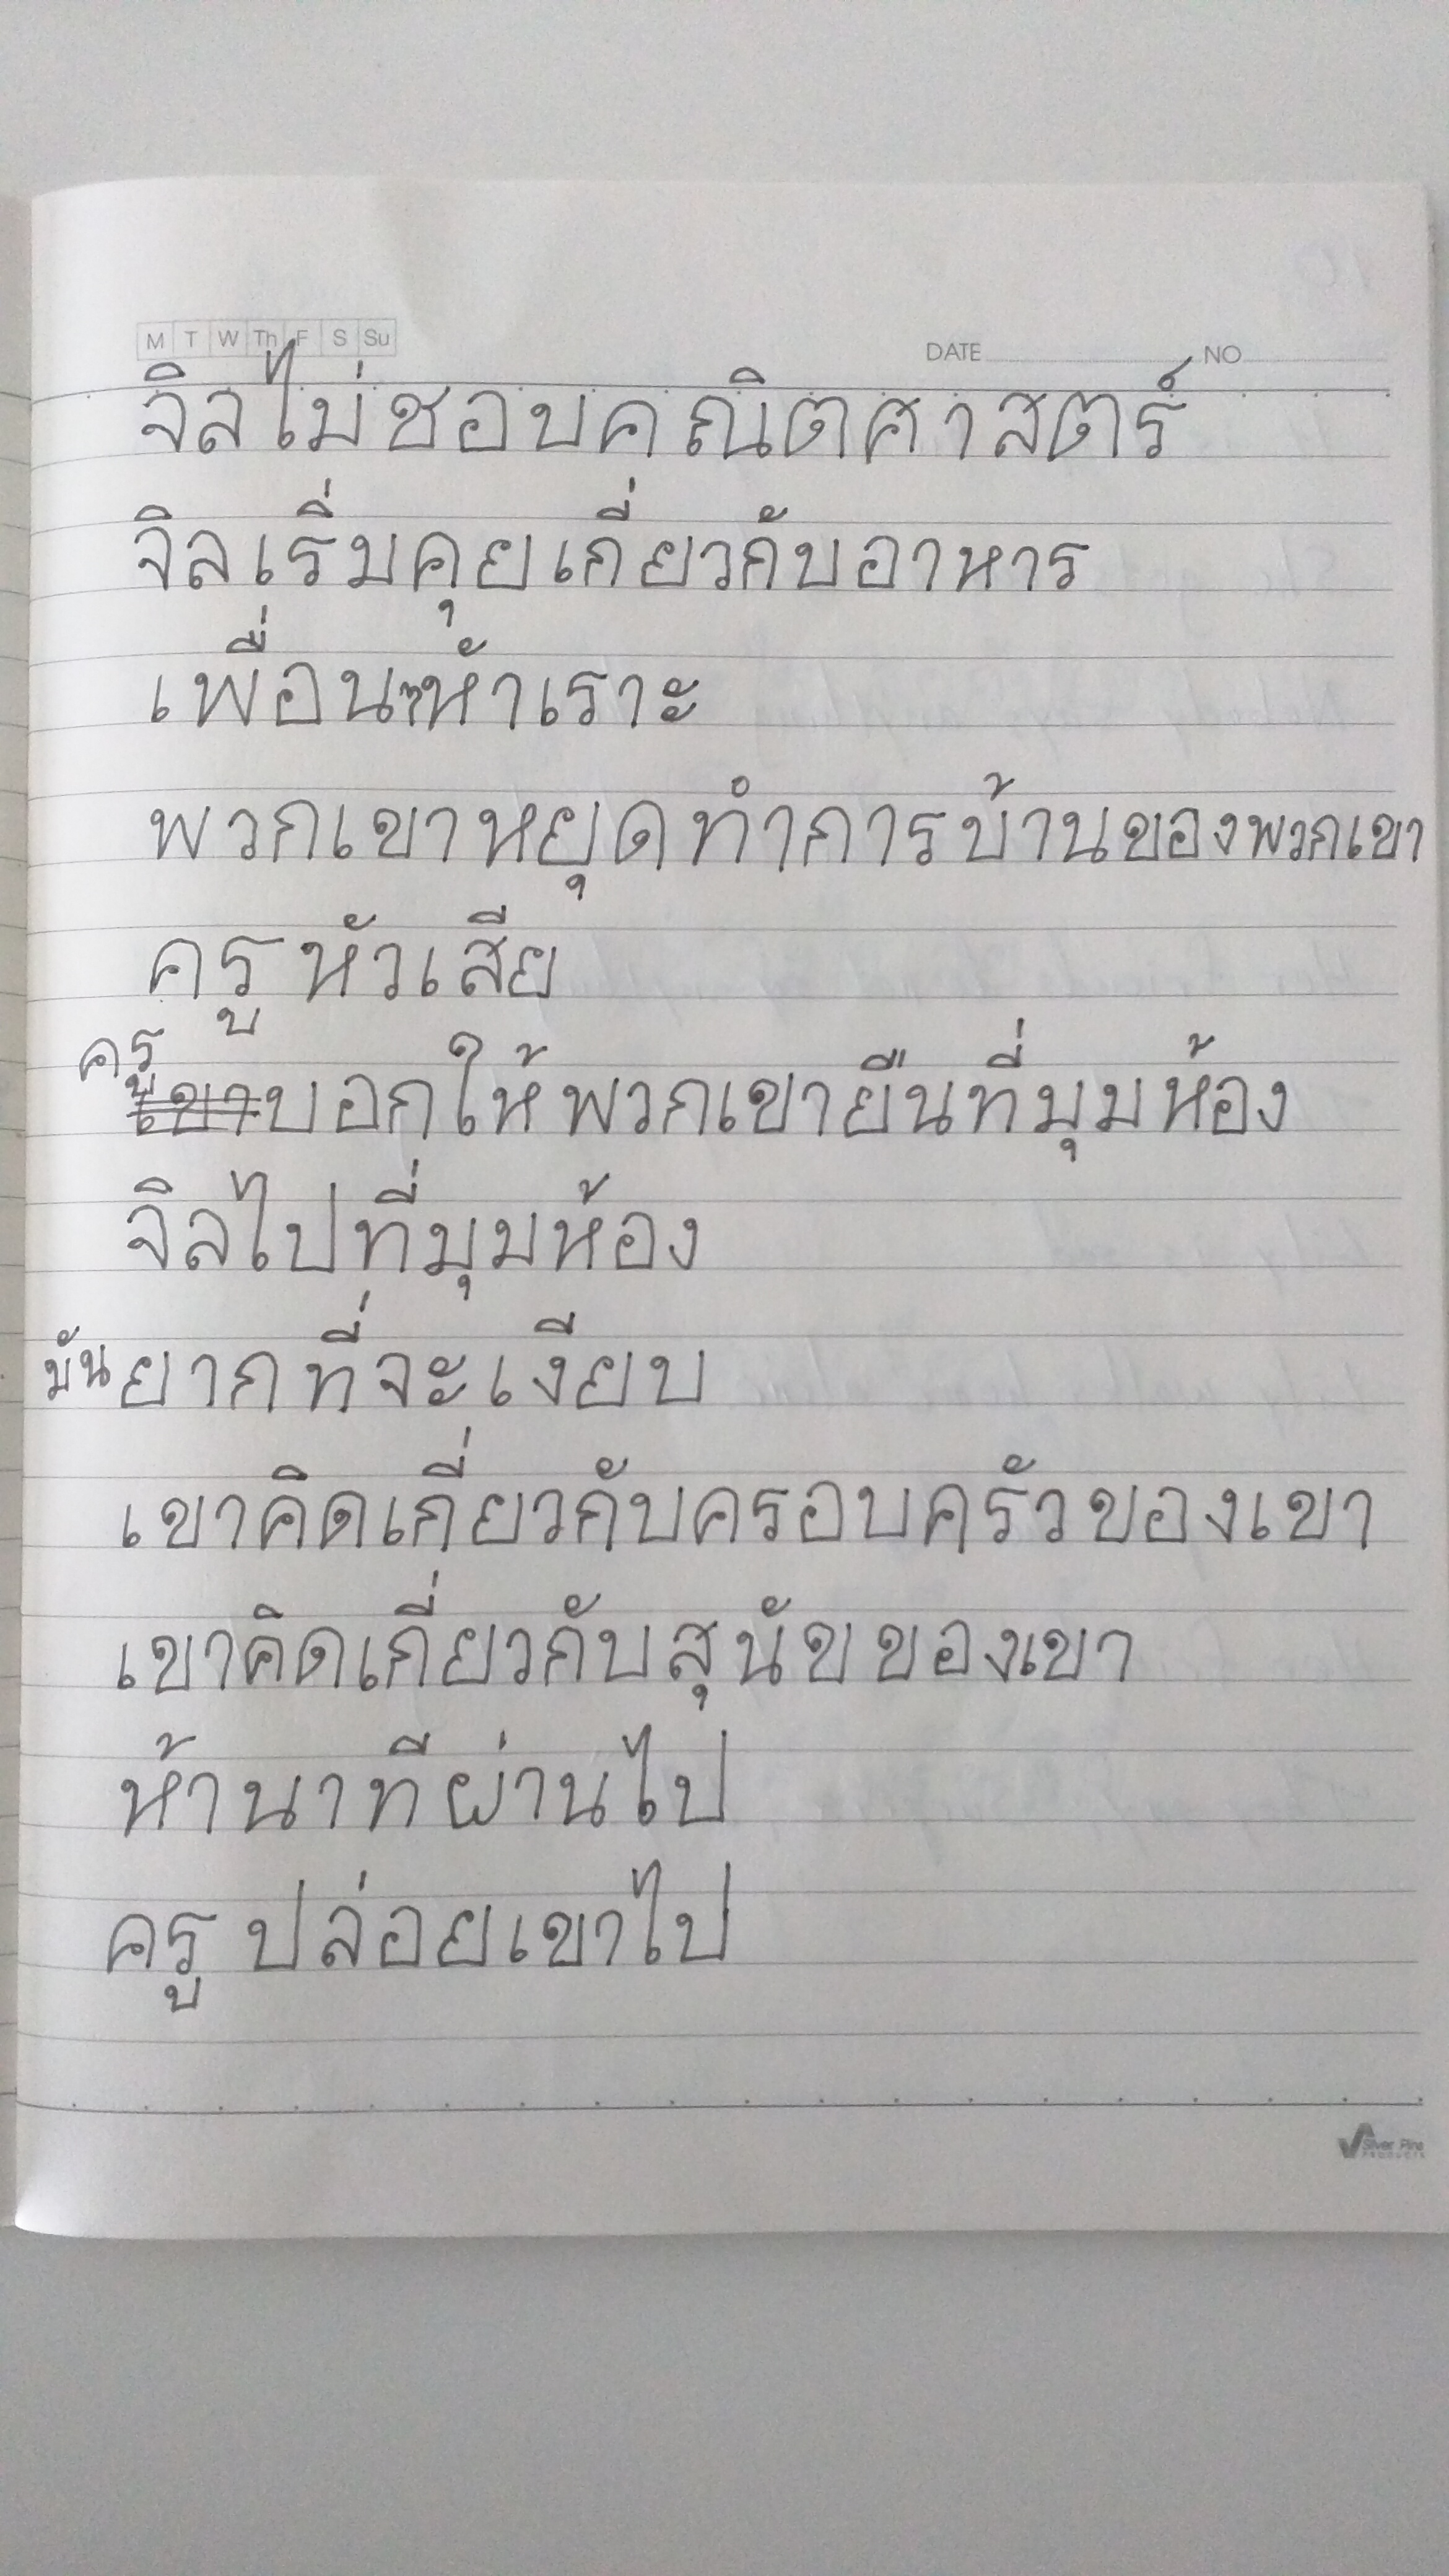 M T W Th F S Su
DATE NO
จิลไม่ชอบคณิตศาสตร์
จิลเริ่มคุยเกี่ยวกับอาหาร
เพื่อนๆหัาเราะ
พวกเขาหยุดทำการบ้านของพวกเขา
ครูหัวเสีย
ครู
เขาบอกให้พวกเขายืนที่มุมห้อง
จิลไปที่มุมห้อง
มันยากที่จะเงียบ
เขาคิดเกี่ยวกับครอบครัวของเขา
เขาคิดเกี่ยวกับสุนัขของเขา
ห้านาทีผ่านไป
ครูปล่อยเขาไป
Silver Pine
PRODUCTS